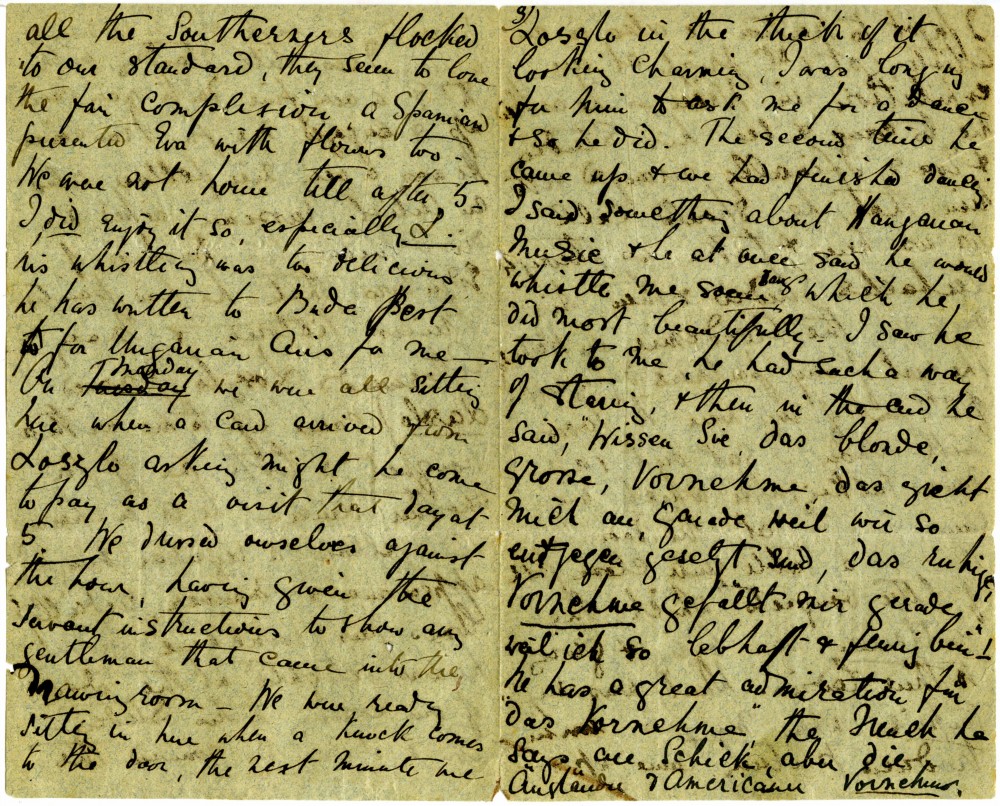 all the Southerners flocked
to our standard, they seem to love
the fair complexion, a Spaniard
presented Eva with flowers too.
We were not home till after 5.
I did enjoy it so, especially L.
his whistling was too delicious
he has written to Buda Pest
for Ungarian Airs for me —
On Tuesday Monday we were all sitting
here when a card arrived from
Laszlo asking might he come
to pay us a visit that day at
5. We dressed ourselves against
the hour, having given the
servant instructions to show any
gentleman that came into the
Drawing room — We were ready
sitting in here when a knock comes
to the door, the next minute we
3) Laszlo in the thick of it
looking charming, I was longing
for him to ask me for a dance
& so he did. The second time he
came up & we had finished dancing
I said something about Hungarian
Music & he at once said he would
whistle me some Hung which he
did most beautifully. I saw he
took to me, he had such a way
of staring, & then in the end he
said, "Wissen Sie, das blonde,
grosse, Vornehme, das zieht
mich an, gerade weil wir so
entgegen gesetzt sind, das ruhige,
Vornehme gefällt mir gerade
weil ich so lebhaft & feurig bin"!
He has a great admiration for
"das Vornehme" the French he
says are Schick, aber die
Engländer & Americaner Vornehm.